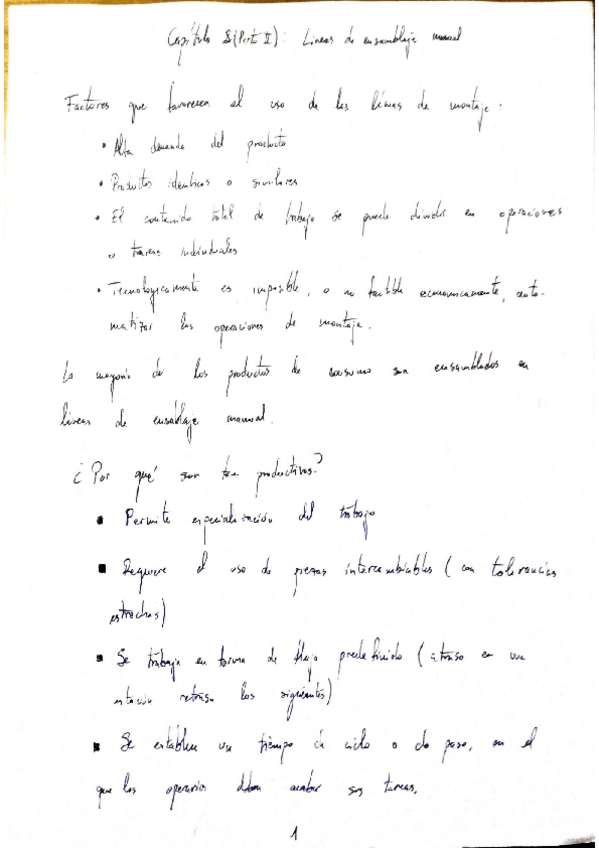 Capítulo (Part II): Líneas de ensamblaje manual
Factores que favorecen el uso de las líneas de montaje.
• Alta demanda del producto
• Productos idénticos o similares
• El contenido total de trabajo se puede dividir en operaciones
o tareas individuales
• Tecnologicamente es imposible, o no factible economicamente, auto-
matizar las operaciones de montaje.
La mayoría de los productos de consumo son ensamblados en
líneas de ensablaje manual.
¿Por qué son tan productivas?
▪ Permite especialización del trabajo
▪ Requiere el uso de piezas intercambiables (con tolerancias
estrechas)
▪ Se trabaja en forma de flujo predefinido (atraso en una
estación retrasa las siguientes)
▪ Se establece un tiempo de ciclo o de paso, en el
que los operarios deben acabar sus tareas.
1